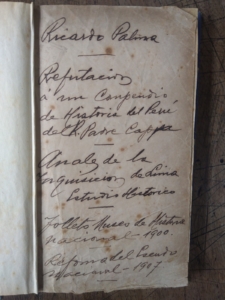 Ricardo Palma
Refutación
á un Compendio
de Historia del Perú
del R. Padre Cappa
Anales de la
Inquisicion de Lima
Estudio Historico
Folleto Museo de Historia
nacional - 1900.
Reforma del Escudo
nacional - 1907